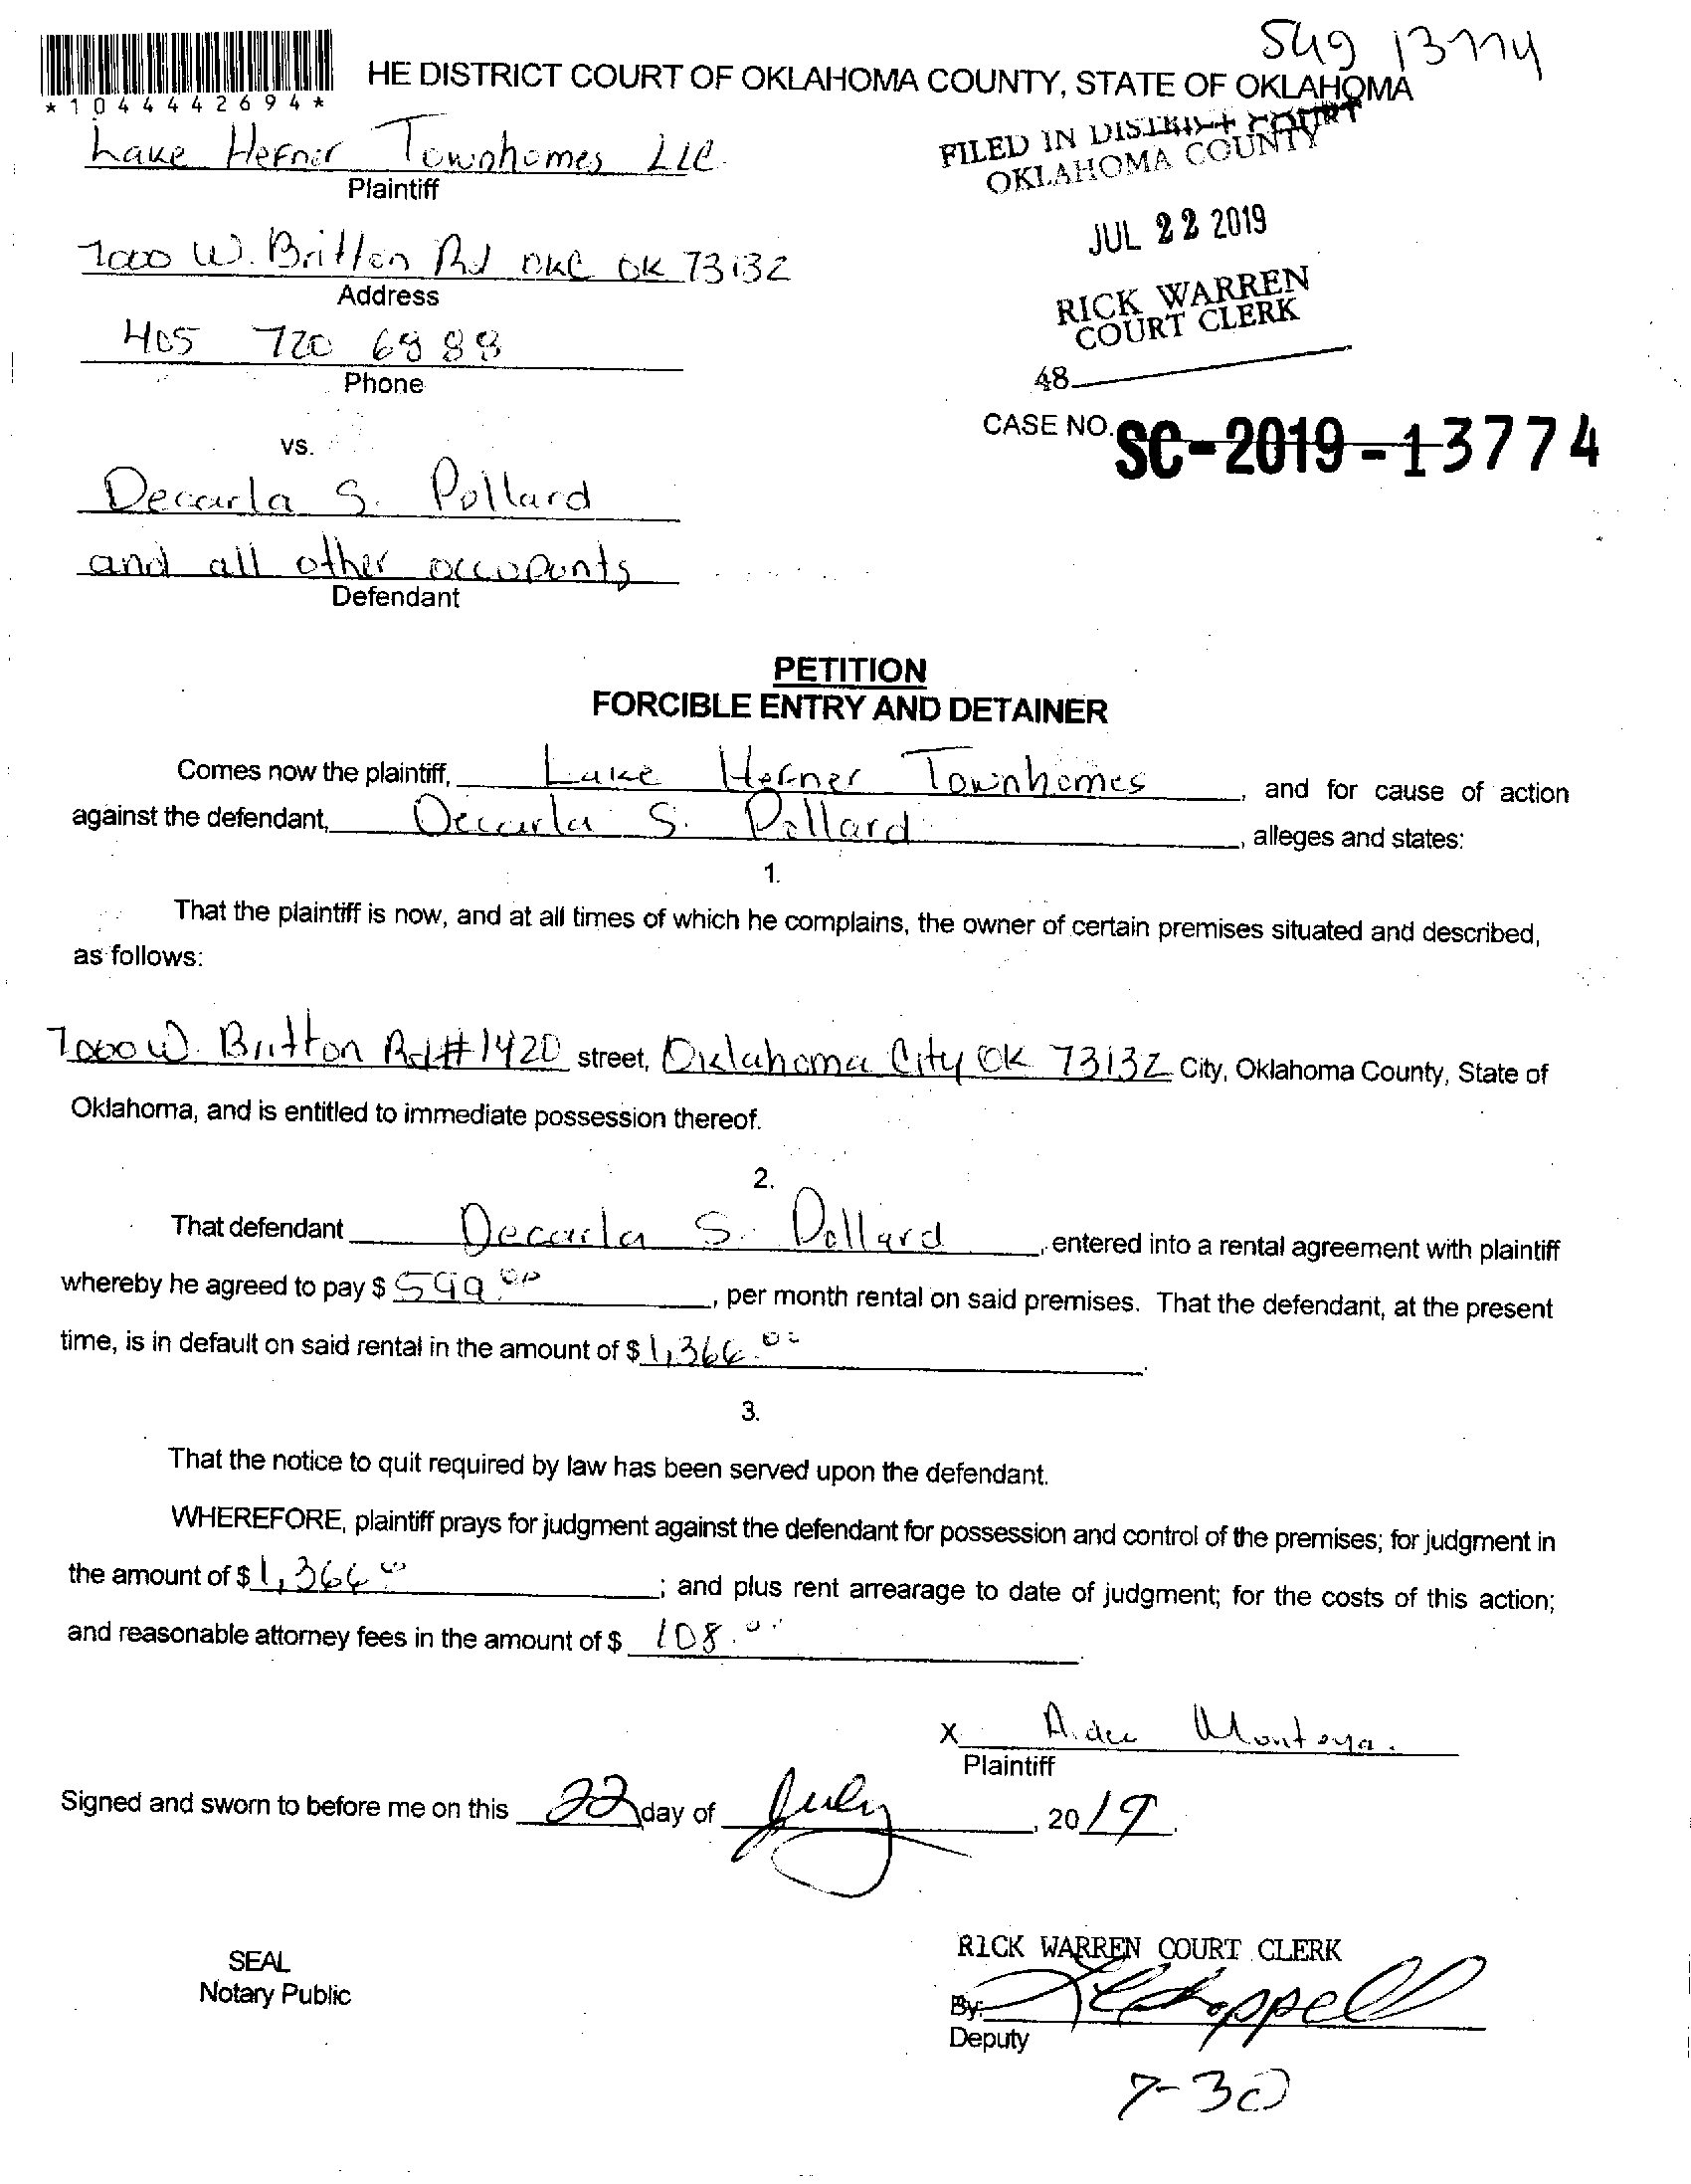 HE DISTRICT COURT OF OKLAHOMA COUNTY, STATE OF OKLAHOMA
*1044442694*
Lake Hefner Townhomes LLC.
Plaintiff
FILED IN DISTRICT COURT
OKLAHOMA COUNTY
JUL 22 2019
RICK WARREN
COURT CLERK
48
7000 W. Britton Rd OKC OK 73132
Address
405 720 6988
Phone
CASE NO. SC-2019-13774
vs.
Decarla S. Pollard
and all other occupants
Defendant
PETITION
FORCIBLE ENTRY AND DETAINER
Comes now the plaintiff, Lake Hefner Townhomes, and for cause of action
against the defendant, Decarla S. Pollard, alleges and states:
1.
That the plaintiff is now, and at all times of which he complains, the owner of certain premises situated and described,
as follows:
7000 W. Britton Rd #1420 street, Oklahoma City OK 73132 City, Oklahoma County, State of
Oklahoma, and is entitled to immediate possession thereof.
2.
That defendant Decarla S. Pollard, entered into a rental agreement with plaintiff
whereby he agreed to pay $ 599.00, per month rental on said premises. That the defendant, at the present
time, is in default on said rental in the amount of $ 1,366.00.
3.
That the notice to quit required by law has been served upon the defendant.
WHEREFORE, plaintiff prays for judgment against the defendant for possession and control of the premises; for judgment in
the amount of $ 1,366.00; and plus rent arrearage to date of judgment; for the costs of this action;
and reasonable attorney fees in the amount of $ 108.00.
X Montoya.
Plaintiff
Signed and sworn to before me on this 22 day of July, 2019.
SEAL
Notary Public
RICK WARREN COURT CLERK
By:
Deputy
7-30